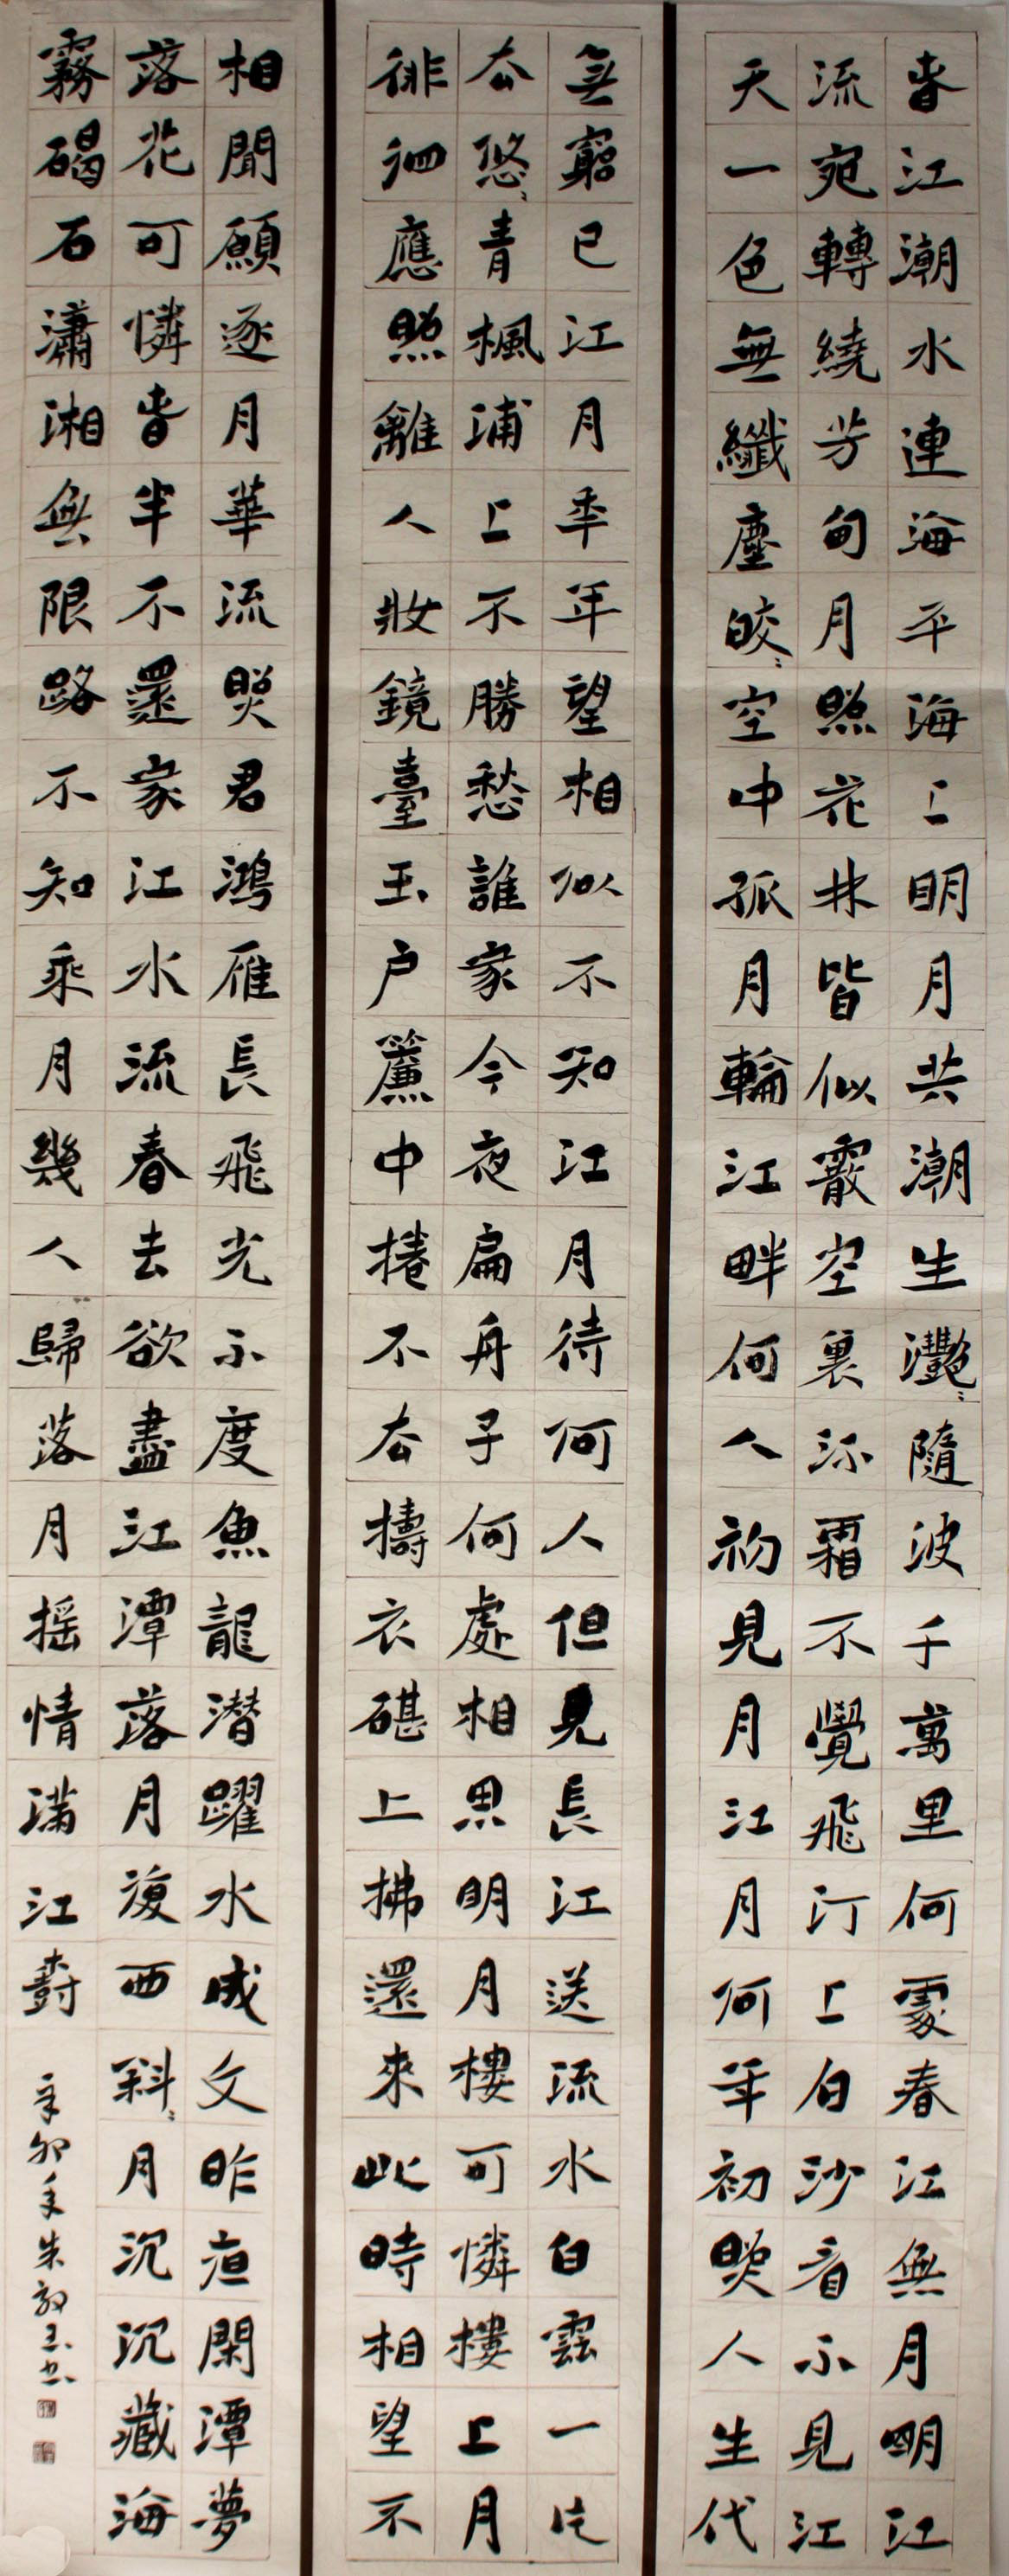 春江潮水連海平海上明月共潮生灩〻隨波千萬里何處春江無月明江
流宛轉繞芳甸月照花林皆似霰空裏流霜不覺飛汀上白沙看不見江
天一色無纖塵皎〻空中孤月輪江畔何人初見月江月何年初照人生代
無窮已江月年年望相似不知江月待何人但見長江送流水白雲一片
去悠〻青楓浦上不勝愁誰家今夜扁舟子何處相思明月樓可憐樓上月
徘徊應照離人妝鏡臺玉户簾中捲不去擣衣碪上拂還來此時相望不
相聞願逐月華流照君鴻雁長飛光不度魚龍潛躍水成文昨夜閑潭夢
落花可憐春半不還家江水流春去欲盡江潭落月復西斜〻月沉沉藏海
霧碣石瀟湘無限路不知乘月幾人歸落月搖情滿江樹
辛卯年朱書